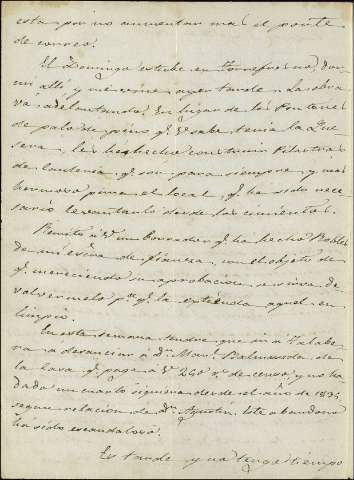 esta por no aumentar mas el porte
de correo.
El Domingo estube en Torrefresno, dor-
mi alli, y me vine ayer tarde. La obra
va adelantando. En lugar de los Pontones
de palo de pino q.e V. sabe tenia la Que-
sera, les he hecho construir Pilastras
de canteria, q.e son para siempre, y mas
hermoso pone el local, q.e ha sido nece-
sario levantarlo desde los cimientos.
Remito á V. un borrador q.e ha hecho Robles
de mi escra de fianza, con el objeto de
q.e mereciendo su aprobacion se sirva de-
volvermelo p.a q.e se estienda aquel en
limpio.
En esta semana tendre que ir á Talabe-
ra a denunciar a D. Man.l
la casa q.e paga á V. 240 r.s de censo, y no ha
dado un cuarto siquiera desde el año de 1836
segun relacion de D.n Agustin. Este abandono
ha sido escandaloso.
Es tarde y no tengo tiempo